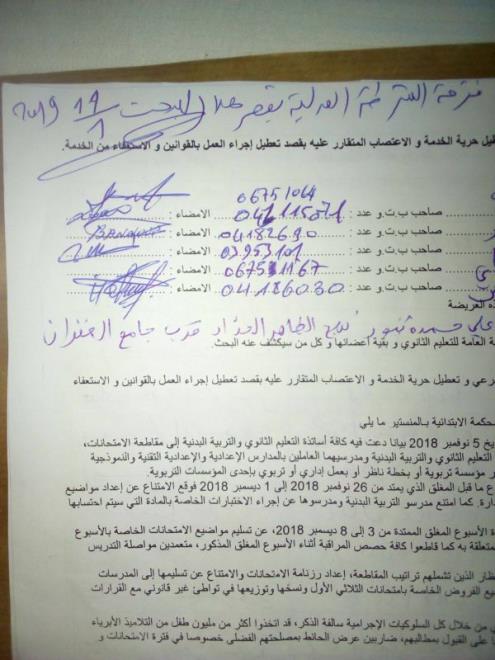 فرقة الشرطة العدلية بقصر هلال للبحث 11/1 2019
تعطيل حرية الخدمة و الاعتصاب المتقارر عليه بقصد تعطيل إجراء العمل بالقوانين و الاستعفاء من الخدمة.
06751064
صاحب ب.ت.و عدد : 04115071 الامضاء :
صاحب ب.ت.و عدد : 04182690 الامضاء :
صاحب ب.ت.و عدد : 03953101 الامضاء :
صاحب ب.ت.و عدد : 06751167 الامضاء :
صاحب ب.ت.و عدد : 04186030 الامضاء :
ده العريضة
الطاهر الحداد قرب جامع الغفران
ة العامة للتعليم الثانوي و بقية أعضائها و كل من سيكشف عنه البحث.
رعي و تعطيل حرية الخدمة و الاعتصاب المتقارر عليه بقصد تعطيل إجراء العمل بالقوانين و الاستعفاء
حكمة الابتدائية بالمنستير ما يلي
يخ 5 نوفمبر 2018 بيانا دعت فيه كافة أساتذة التعليم الثانوي والتربية البدنية إلى مقاطعة الامتحانات،
التعليم الثانوي والتربية البدنية ومدرسيهما العاملين بالمدارس الإعدادية والإعدادية التقنية والنموذجية
ر مؤسسة تربوية أو بخطة ناظر أو بعمل إداري أو تربوي بإحدى المؤسسات التربوية.
ع ما قبل المغلق الذي يمتد من 26 نوفمبر 2018 إلى 1 ديسمبر 2018 فوقع الامتناع عن إعداد مواضيع
دارة. كما امتنع مدرسو التربية البدنية ومدرسوها عن إجراء الاختبارات الخاصة بالمادة التي سيتم احتسابها
ة الأسبوع المغلق الممتدة من 3 إلى 8 ديسمبر 2018، عن تسليم مواضيع الامتحانات الخاصة بالأسبوع
متعلقة به كما قاطعوا كافة حصص المراقبة أثناء الأسبوع المغلق المذكور، متعمدين مواصلة التدريس
نظار الذين تشملهم تراتيب المقاطعة، إعداد رزنامة الامتحانات والامتناع عن تسليمها إلى المدرسات
يع الفروض الخاصة بامتحانات الثلاثي الأول ونسخها وتوزيعها في تواطئ غير قانوني مع القرارات
ي من خلال كل السلوكيات الإجرامية سالفة الذكر، قد اتخذوا أكثر من مليون طفل من التلاميذ الأبرياء
ا على القبول بمطالبهم، ضاربين عرض الحائط بمصلحتهم الفضلى خصوصا في فترة الامتحانات و